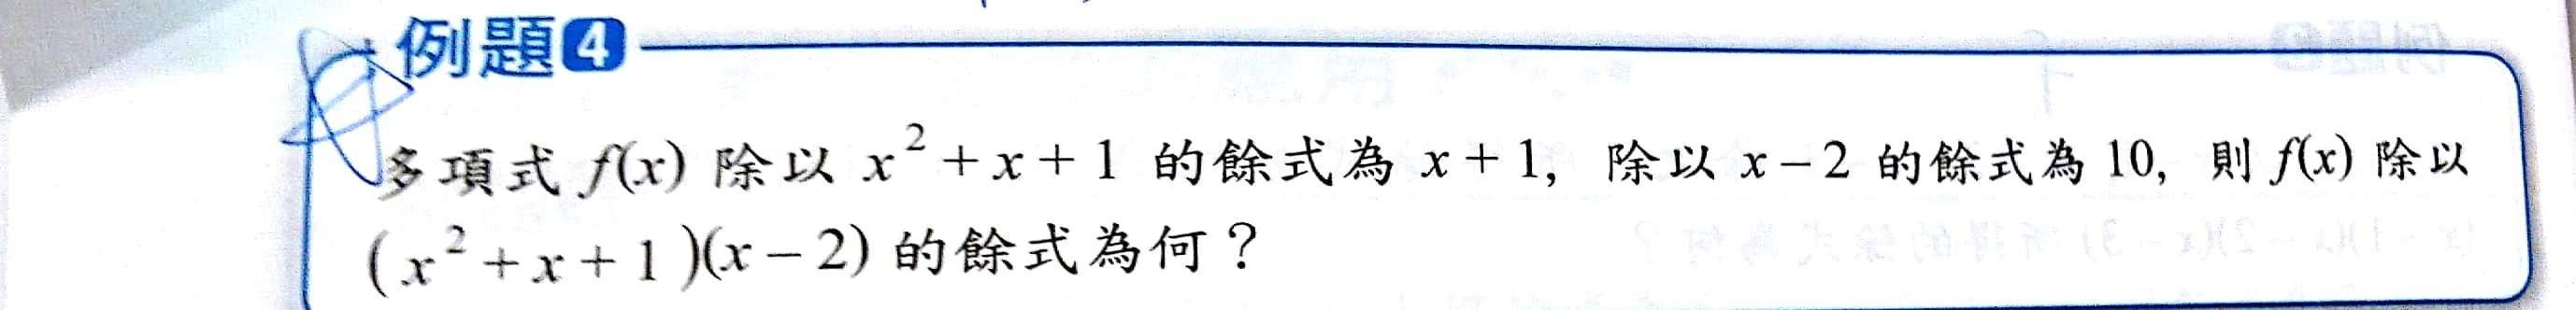 例題4
多項式 f(x) 除以 x²+x+1 的餘式為 x+1, 除以 x-2 的餘式為 10, 則 f(x) 除以
(x²+x+1)(x-2) 的餘式為何？